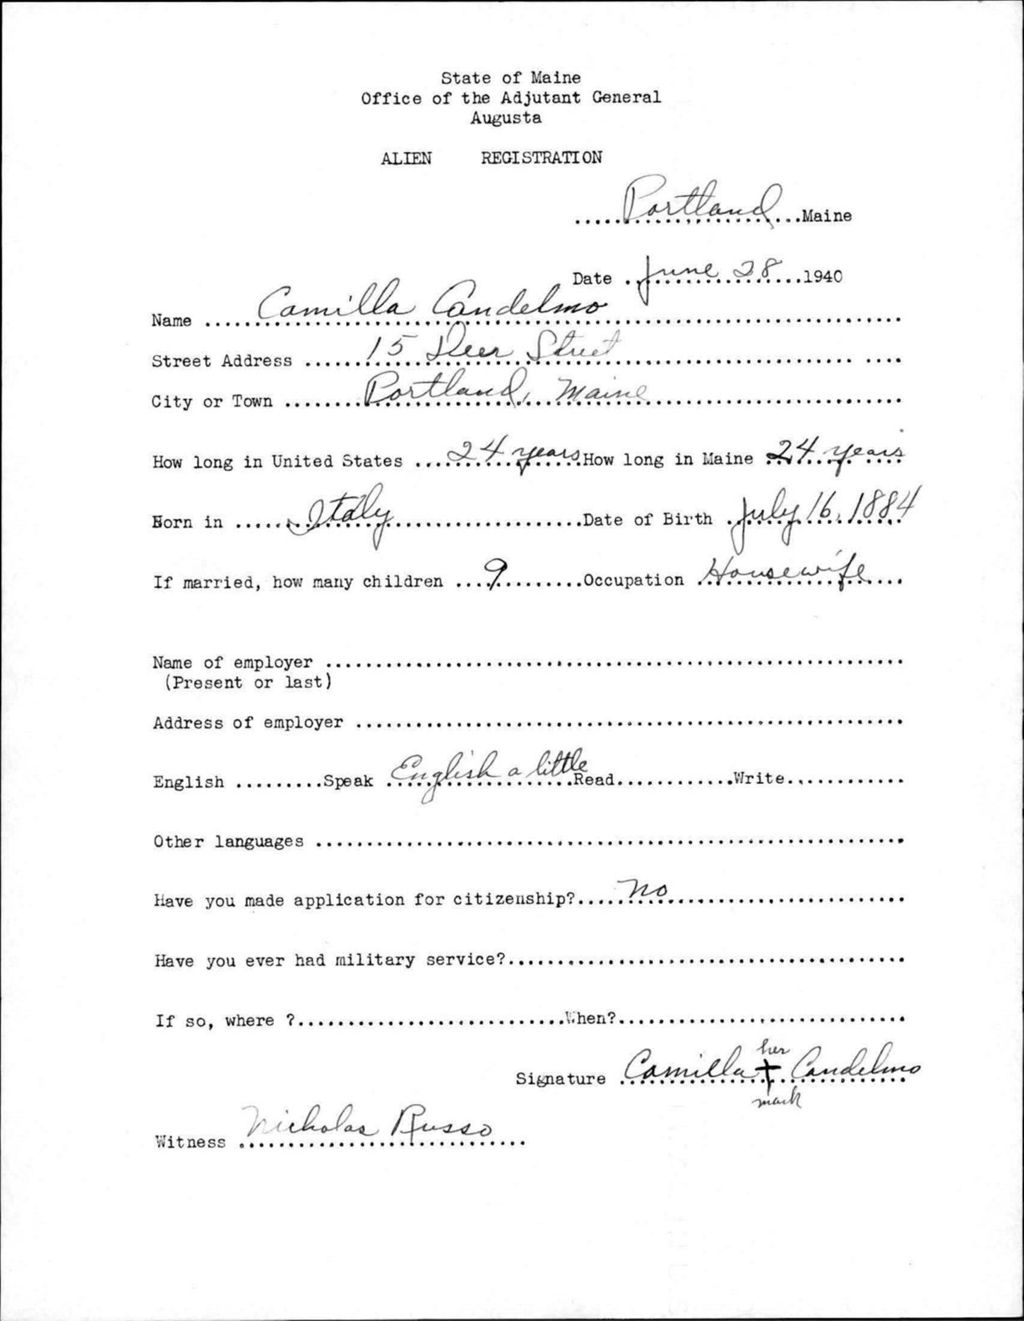 State of Maine
Office of the Adjutant General
Augusta
ALIEN REGISTRATION
.....Portland...Maine
Date ..June 28...1940
Name .....Camilla Candelmo.....
Street Address .....15 Deer Street.....
City or Town .....Portland, Maine.....
How long in United States ...24 years.How long in Maine 24 years
Born in .....Italy.....Date of Birth .July 16, 1884
If married, how many children ...9.....Occupation .Housewife....
Name of employer .....
(Present or last)
Address of employer .....
English .........Speak .English a little.Read............Write.............
Other languages .....
Have you made application for citizenship?....no.....
Have you ever had military service?.....
If so, where ?.....When?.....
her
Signature .Camilla + Candelmo
mark
Witness Nicholas Russo....